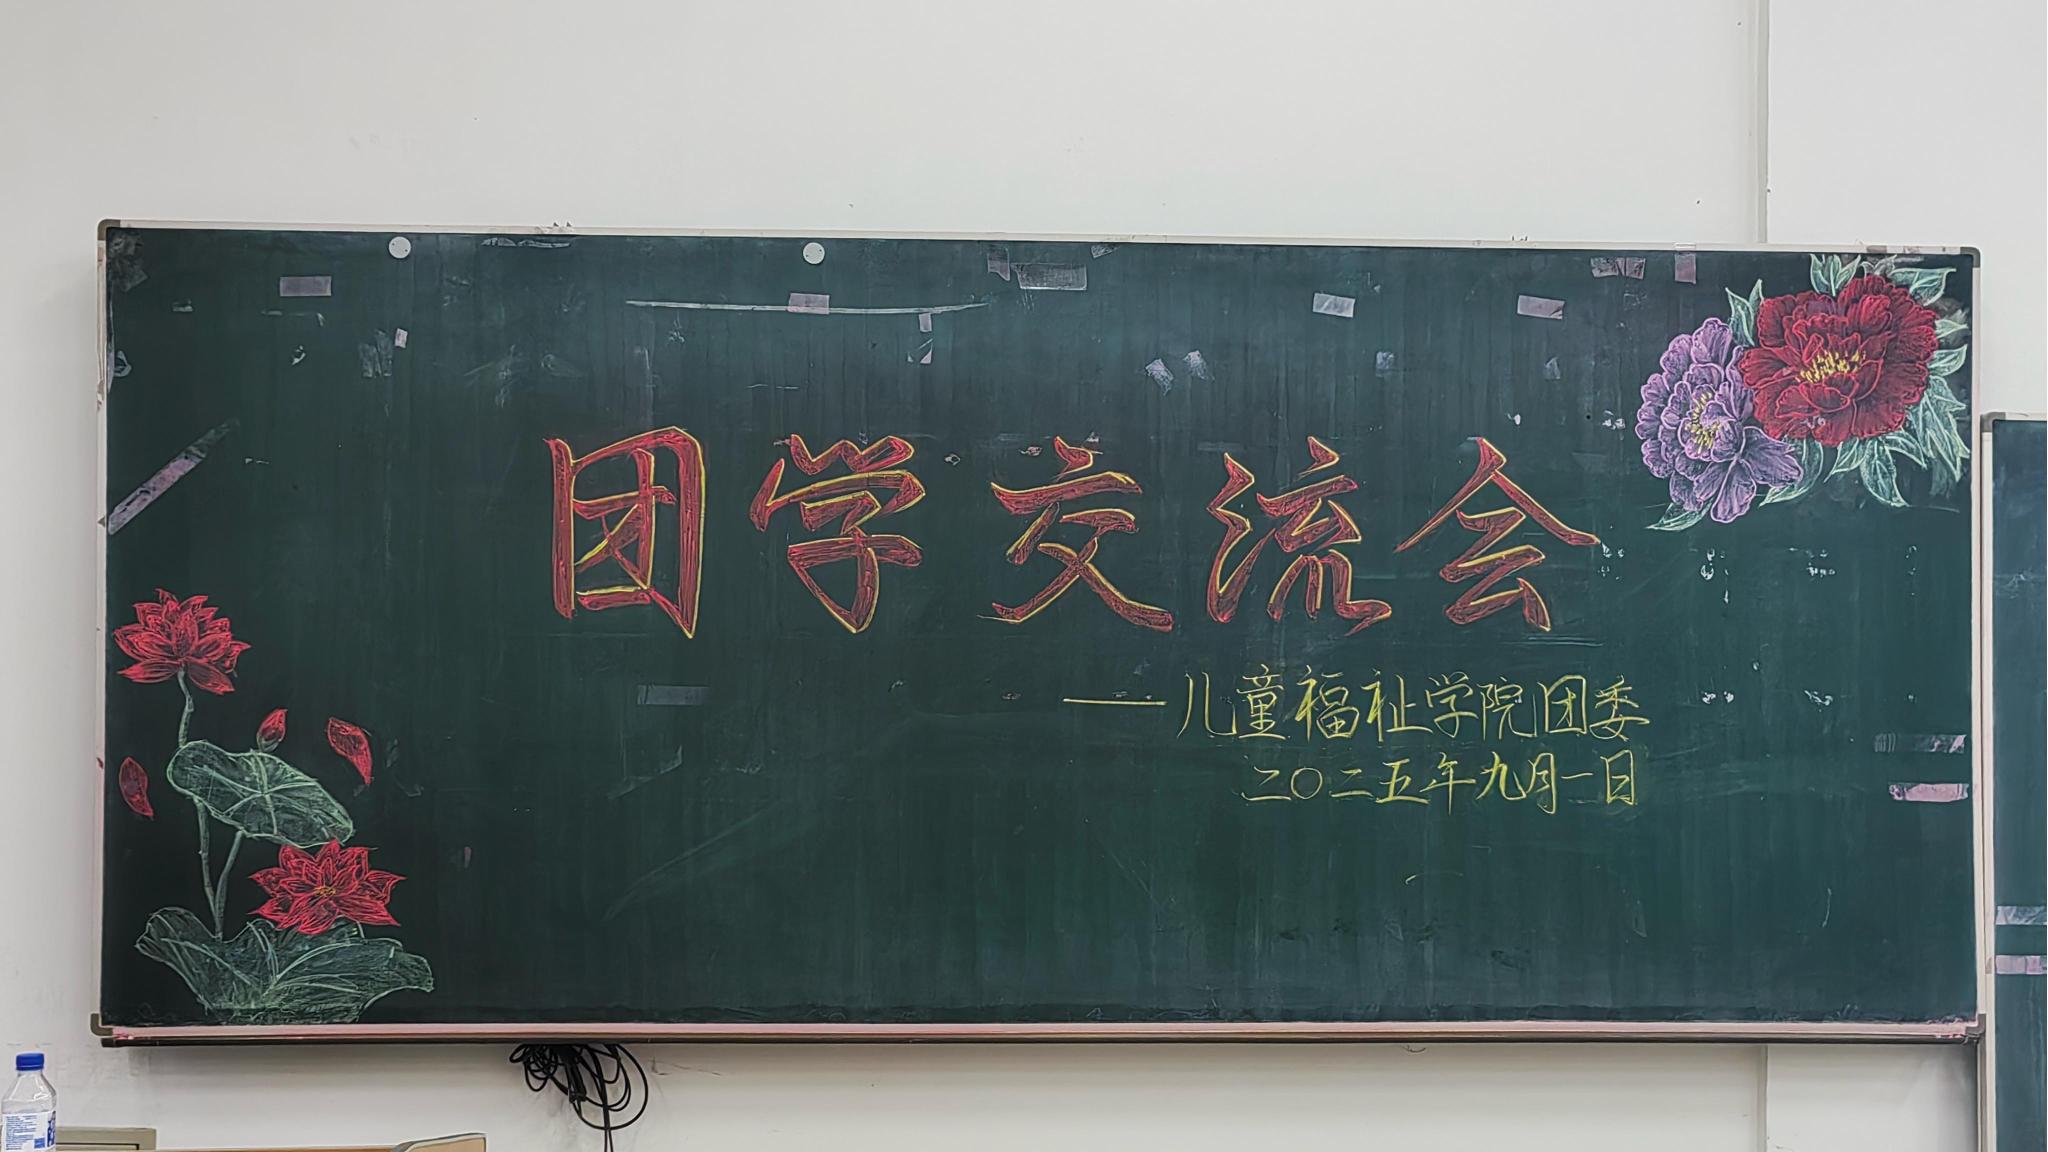 团学交流会
——儿童福祉学院团委
二〇二五年九月一日